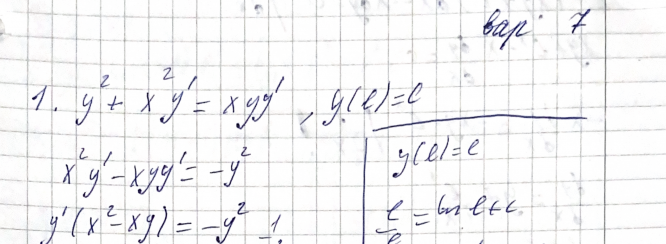 вар 7
1. y² + x²y' = xyy', y(e)=e
x²y' - xyy' = -y²
y'(x² - xy) = -y²
y(e)=e